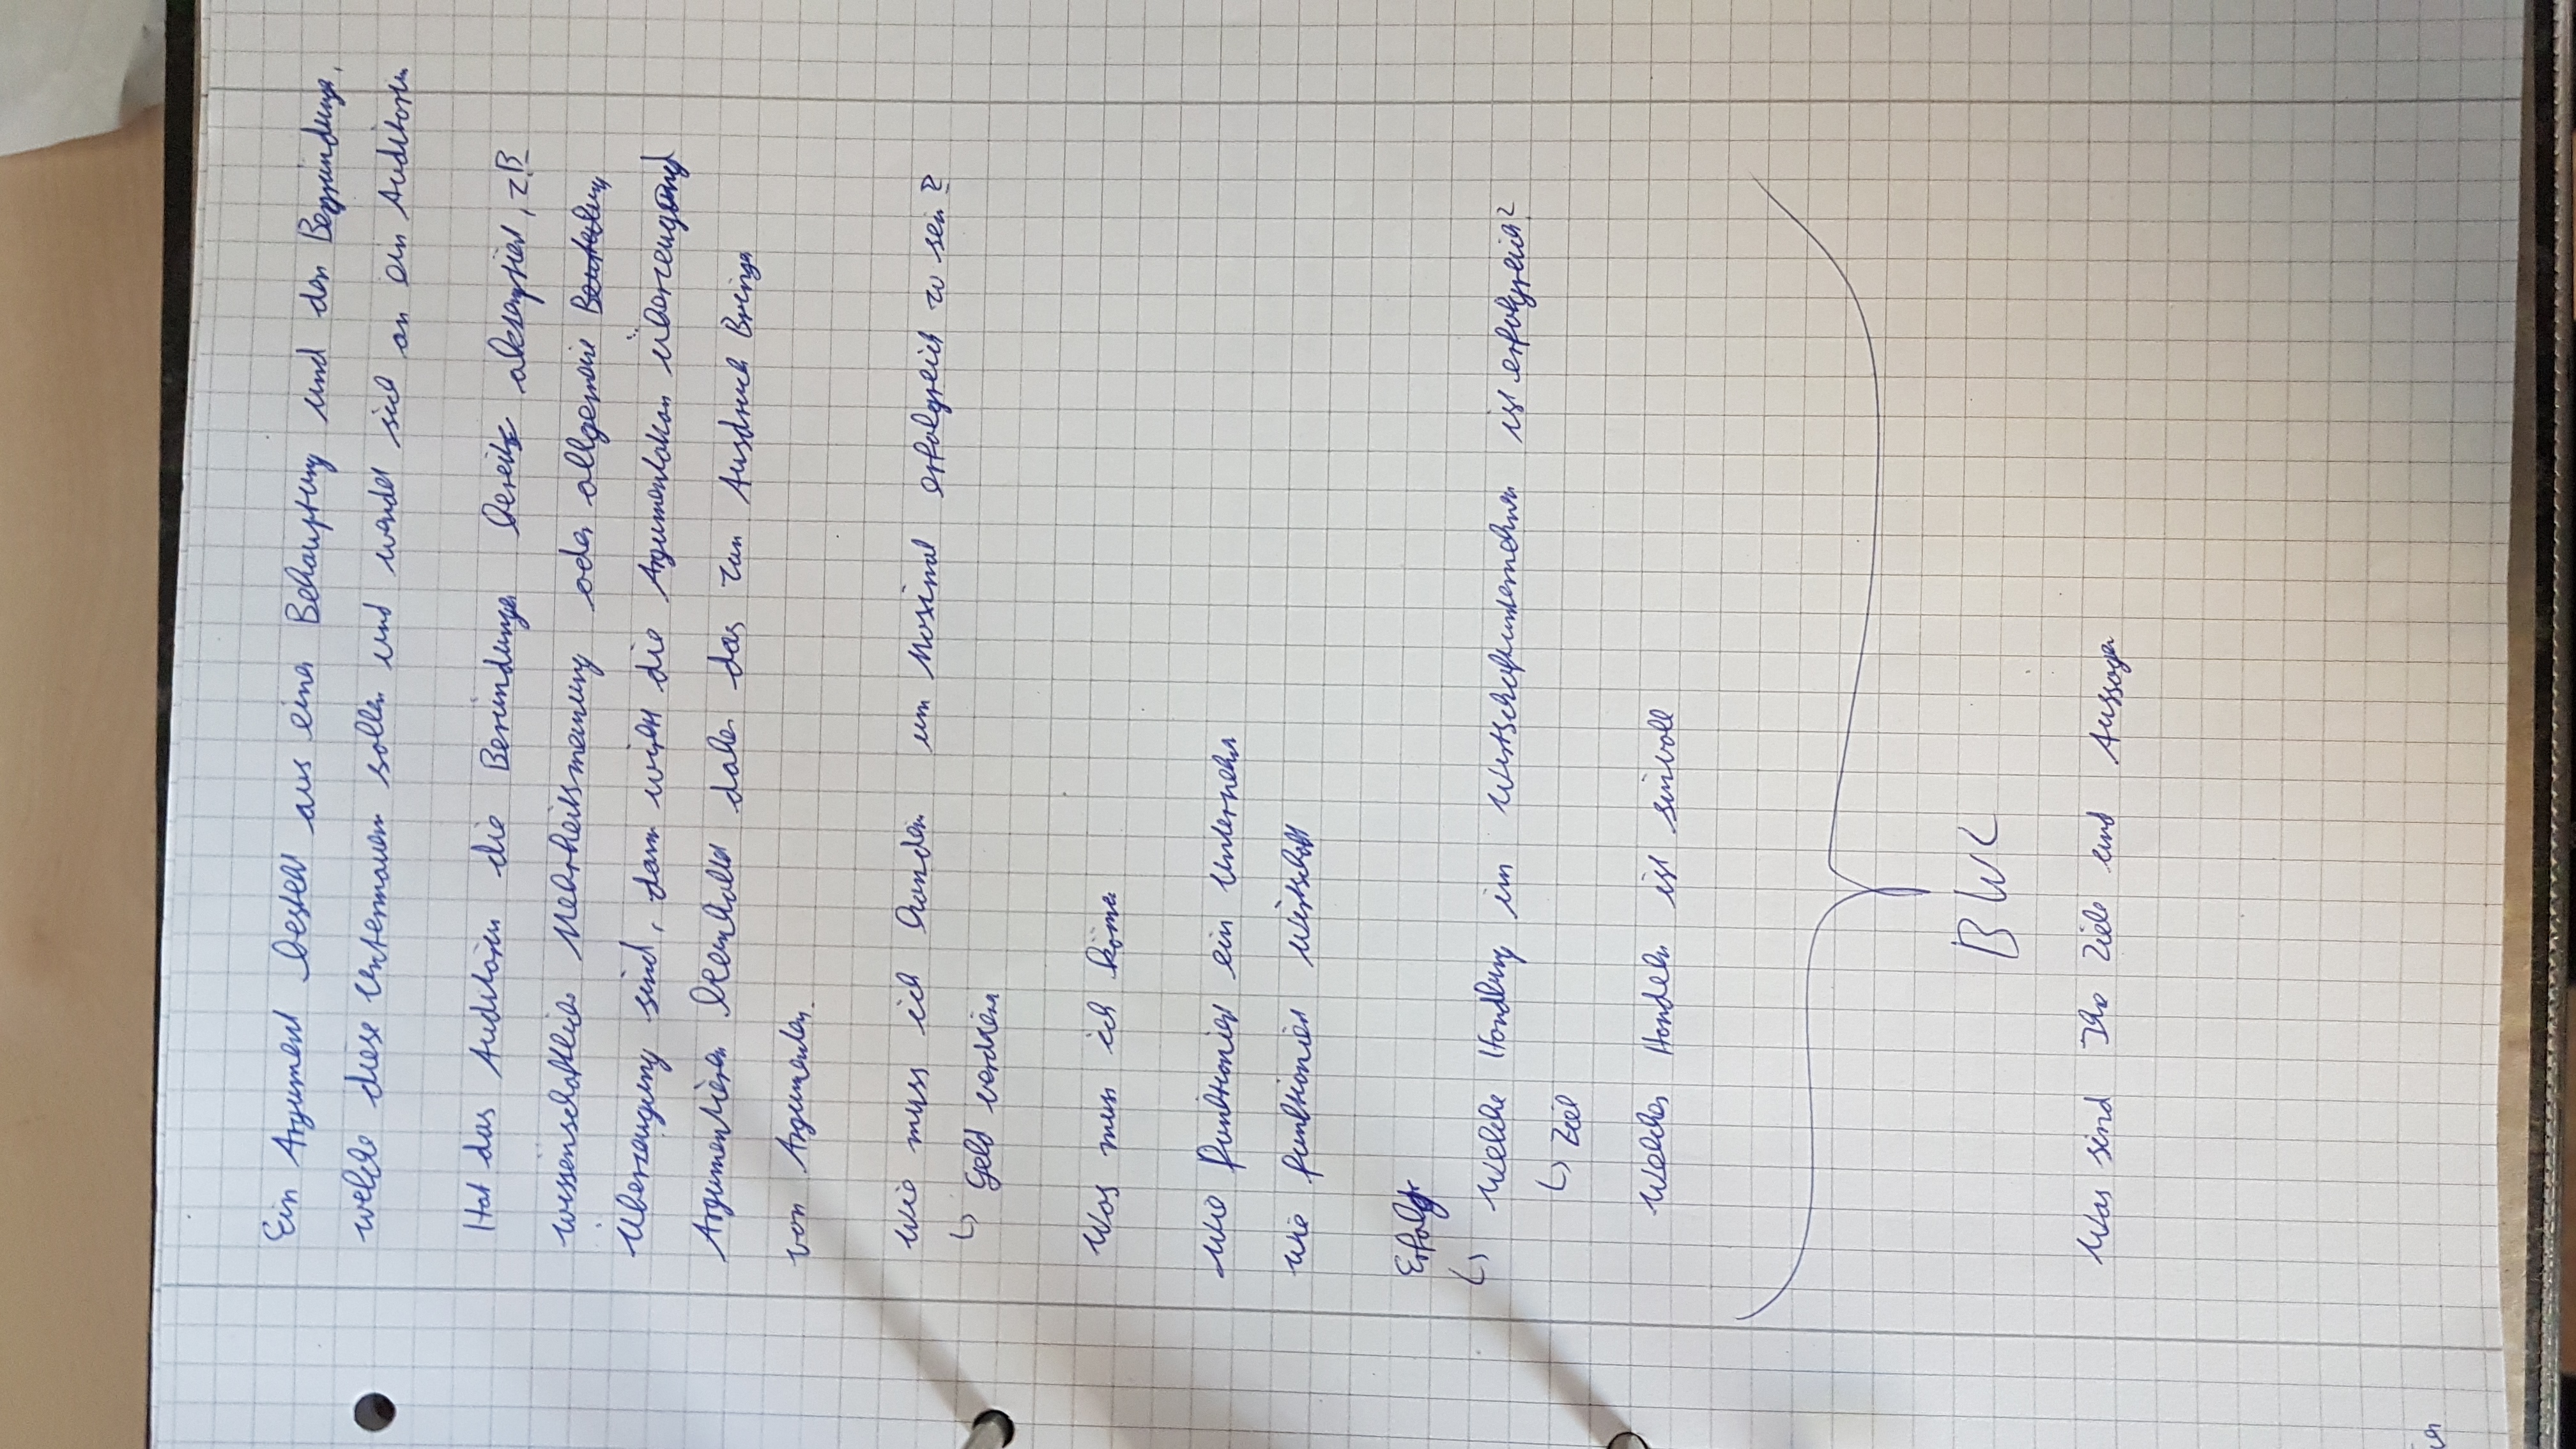 Ein Argument besteht aus einer Behauptung und den Begründungen,
welche diese Untermauern sollen und wendet sich an ein Auditorium
Hat das Auditorium die Beründungen bereits akzeptiert, z.B.
wissenschaftliche Mehrheitsmeinung oder allgemeine
Überzeugung sind, dann wirkt die Argumentation überzeugend
Argumentieren beinhaltet daher das zum Ausdruck Bringen
von Argumenten.
Wie muss ich handeln um Maximal erfolgreich zu sein?
↳ Geld verdienen
Was muss ich können
Wie funktioniert ein Unternehmen
Wie funktioniert Wirtschaft
Erfolg
↳ Welche Handlung im Wirtschaftsunternehmen ist erfolgreich?
↳ Ziel
Welches Handeln ist sinvoll
BWL
Was sind Ihre Ziele und Aussagen